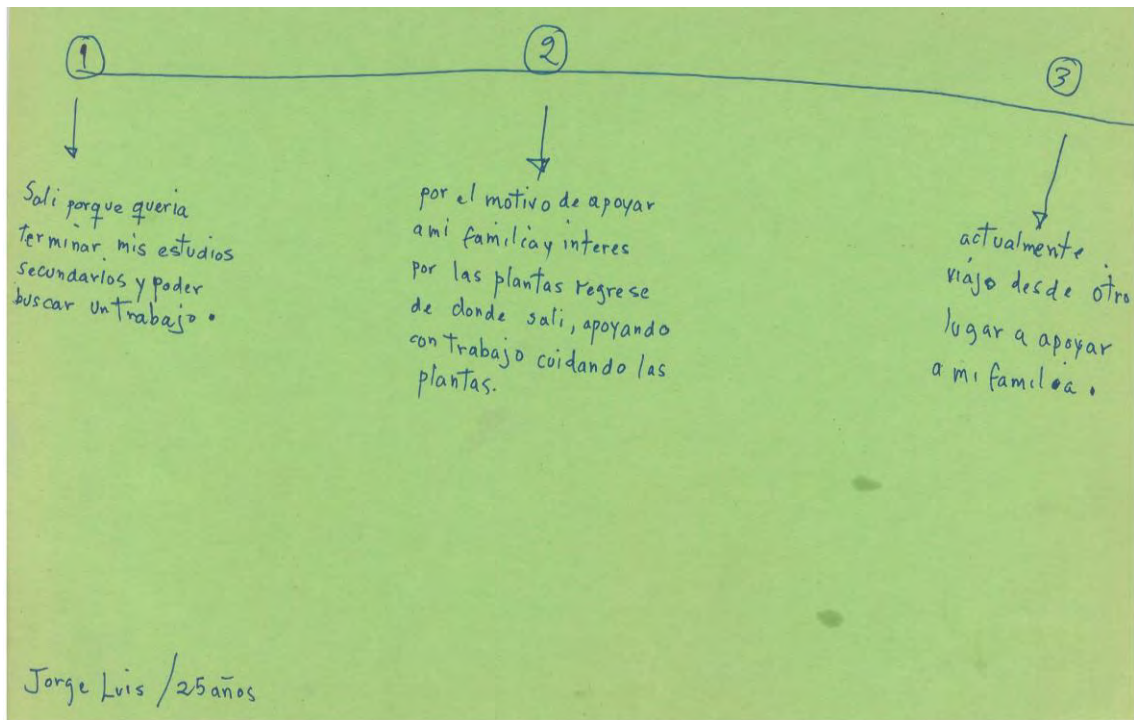 1
2
3
Sali porque queria
terminar mis estudios
secundarios y poder
buscar un trabajo.
por el motivo de apoyar
ami familia y interes
por las plantas regrese
de donde sali, apoyando
con trabajo cuidando las
plantas.
actualmente
viajo desde otro
lugar a apoyar
a mi familia.
Jorge Luis / 25 años